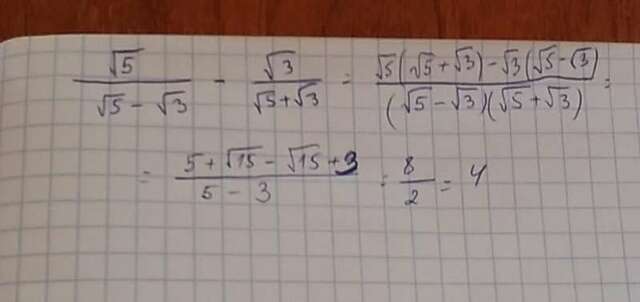 √5/(√5 − √3) − √3/(√5 + √3) = (√5(√5 + √3) − √3(√5 − √3))/((√5 − √3)(√5 + √3)) =
= (5 + √15 − √15 + 3)/(5 − 3) = 8/2 = 4